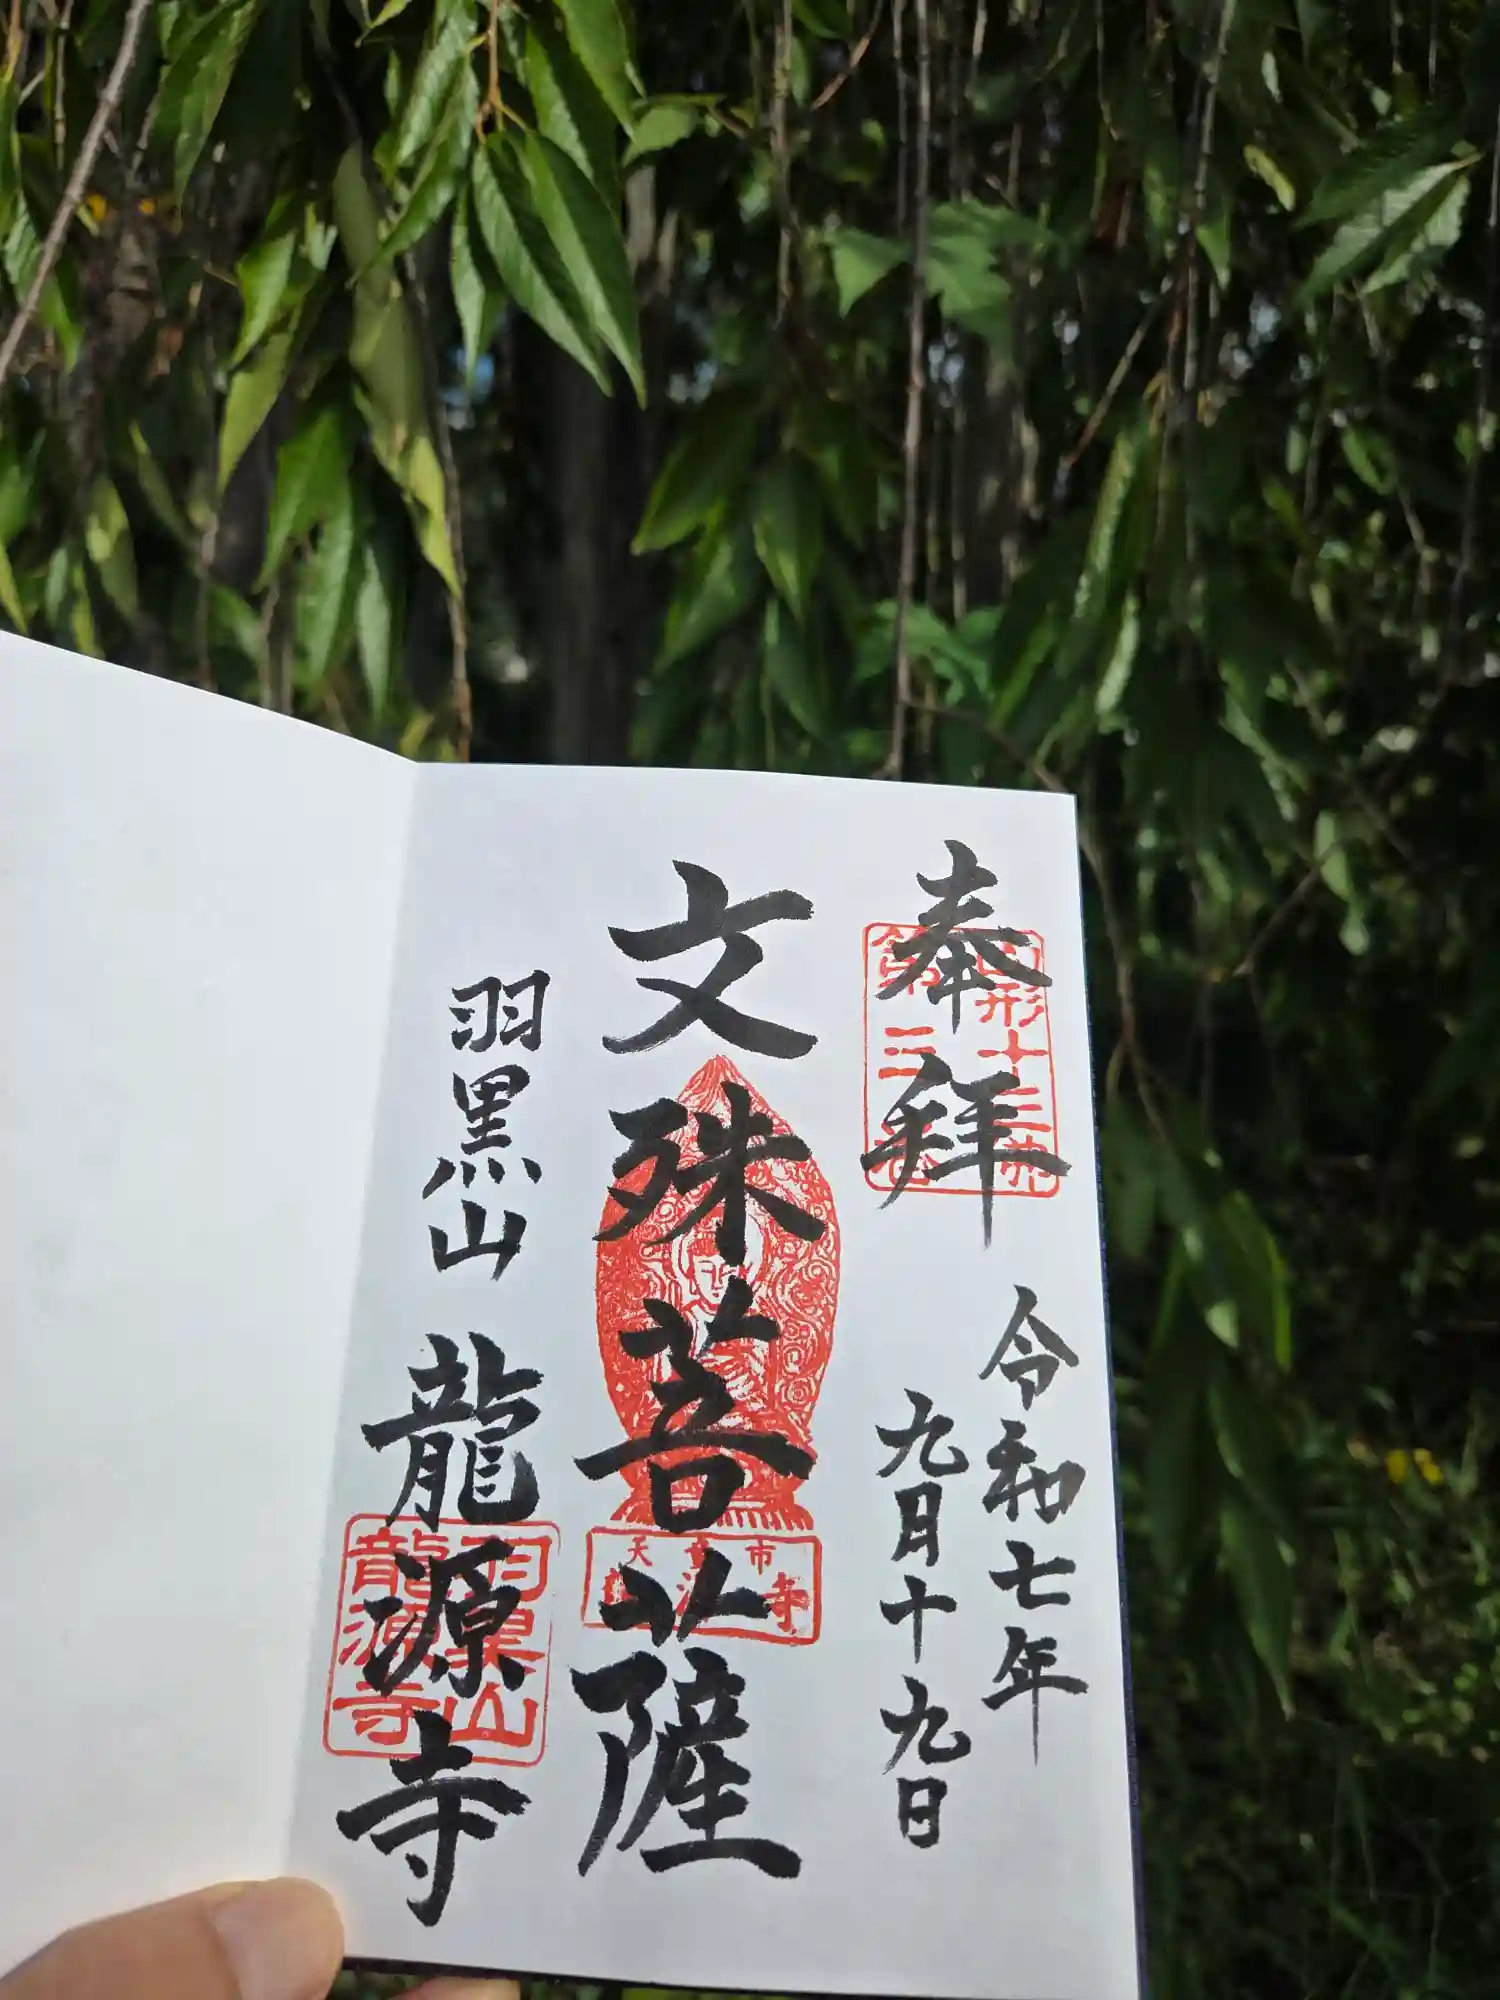 奉拝
令和七年
九月十九日
文殊菩薩
羽黒山 龍源寺
山形十三佛
第三番
天童市
羽黒山
龍源寺